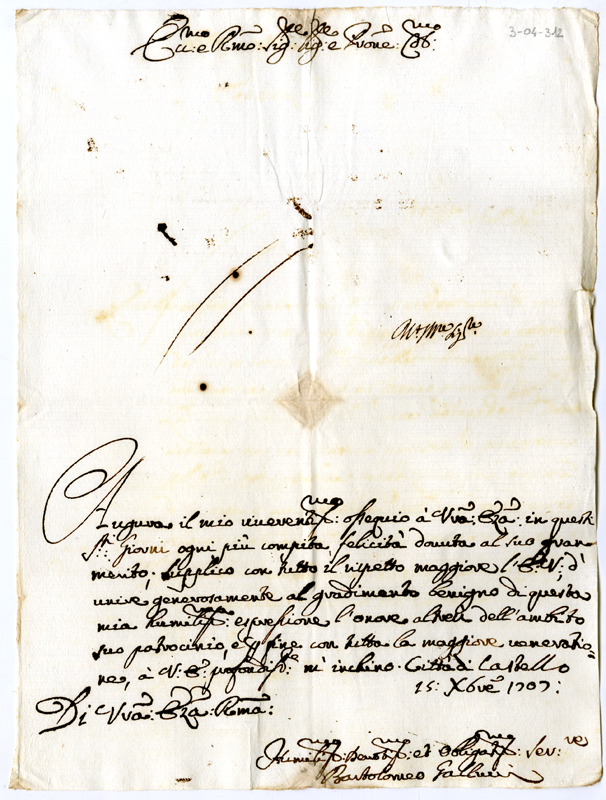 3-04-312
Ecc.mo e R.mo: Sig.re Sig.re e Prone: Col.mo:
Augura il mio riverentiss.mo: ossequio à Vrã: Ecza: in questi
S.ti Giorni ogni più compita felicità dovuta al suo gran
merito; supplico con tutto il rispetto maggiore l'E: V: d'
unire generosamente al gradimento benigno di questa
mia humiliss.ma: espressione l'onore altresì dell'ambito
suo patrocinio, e per fine con tutta la maggiore veneratio-
ne, à V: E: profondiss.te: m'inchino. Città di Castello
15: Xbre 1707:
Di Vrã: Ecza: Rma:
Humiliss.mo Devotiss.mo et Obligatiss.mo: Ser:re
Bartolomeo Gallucci